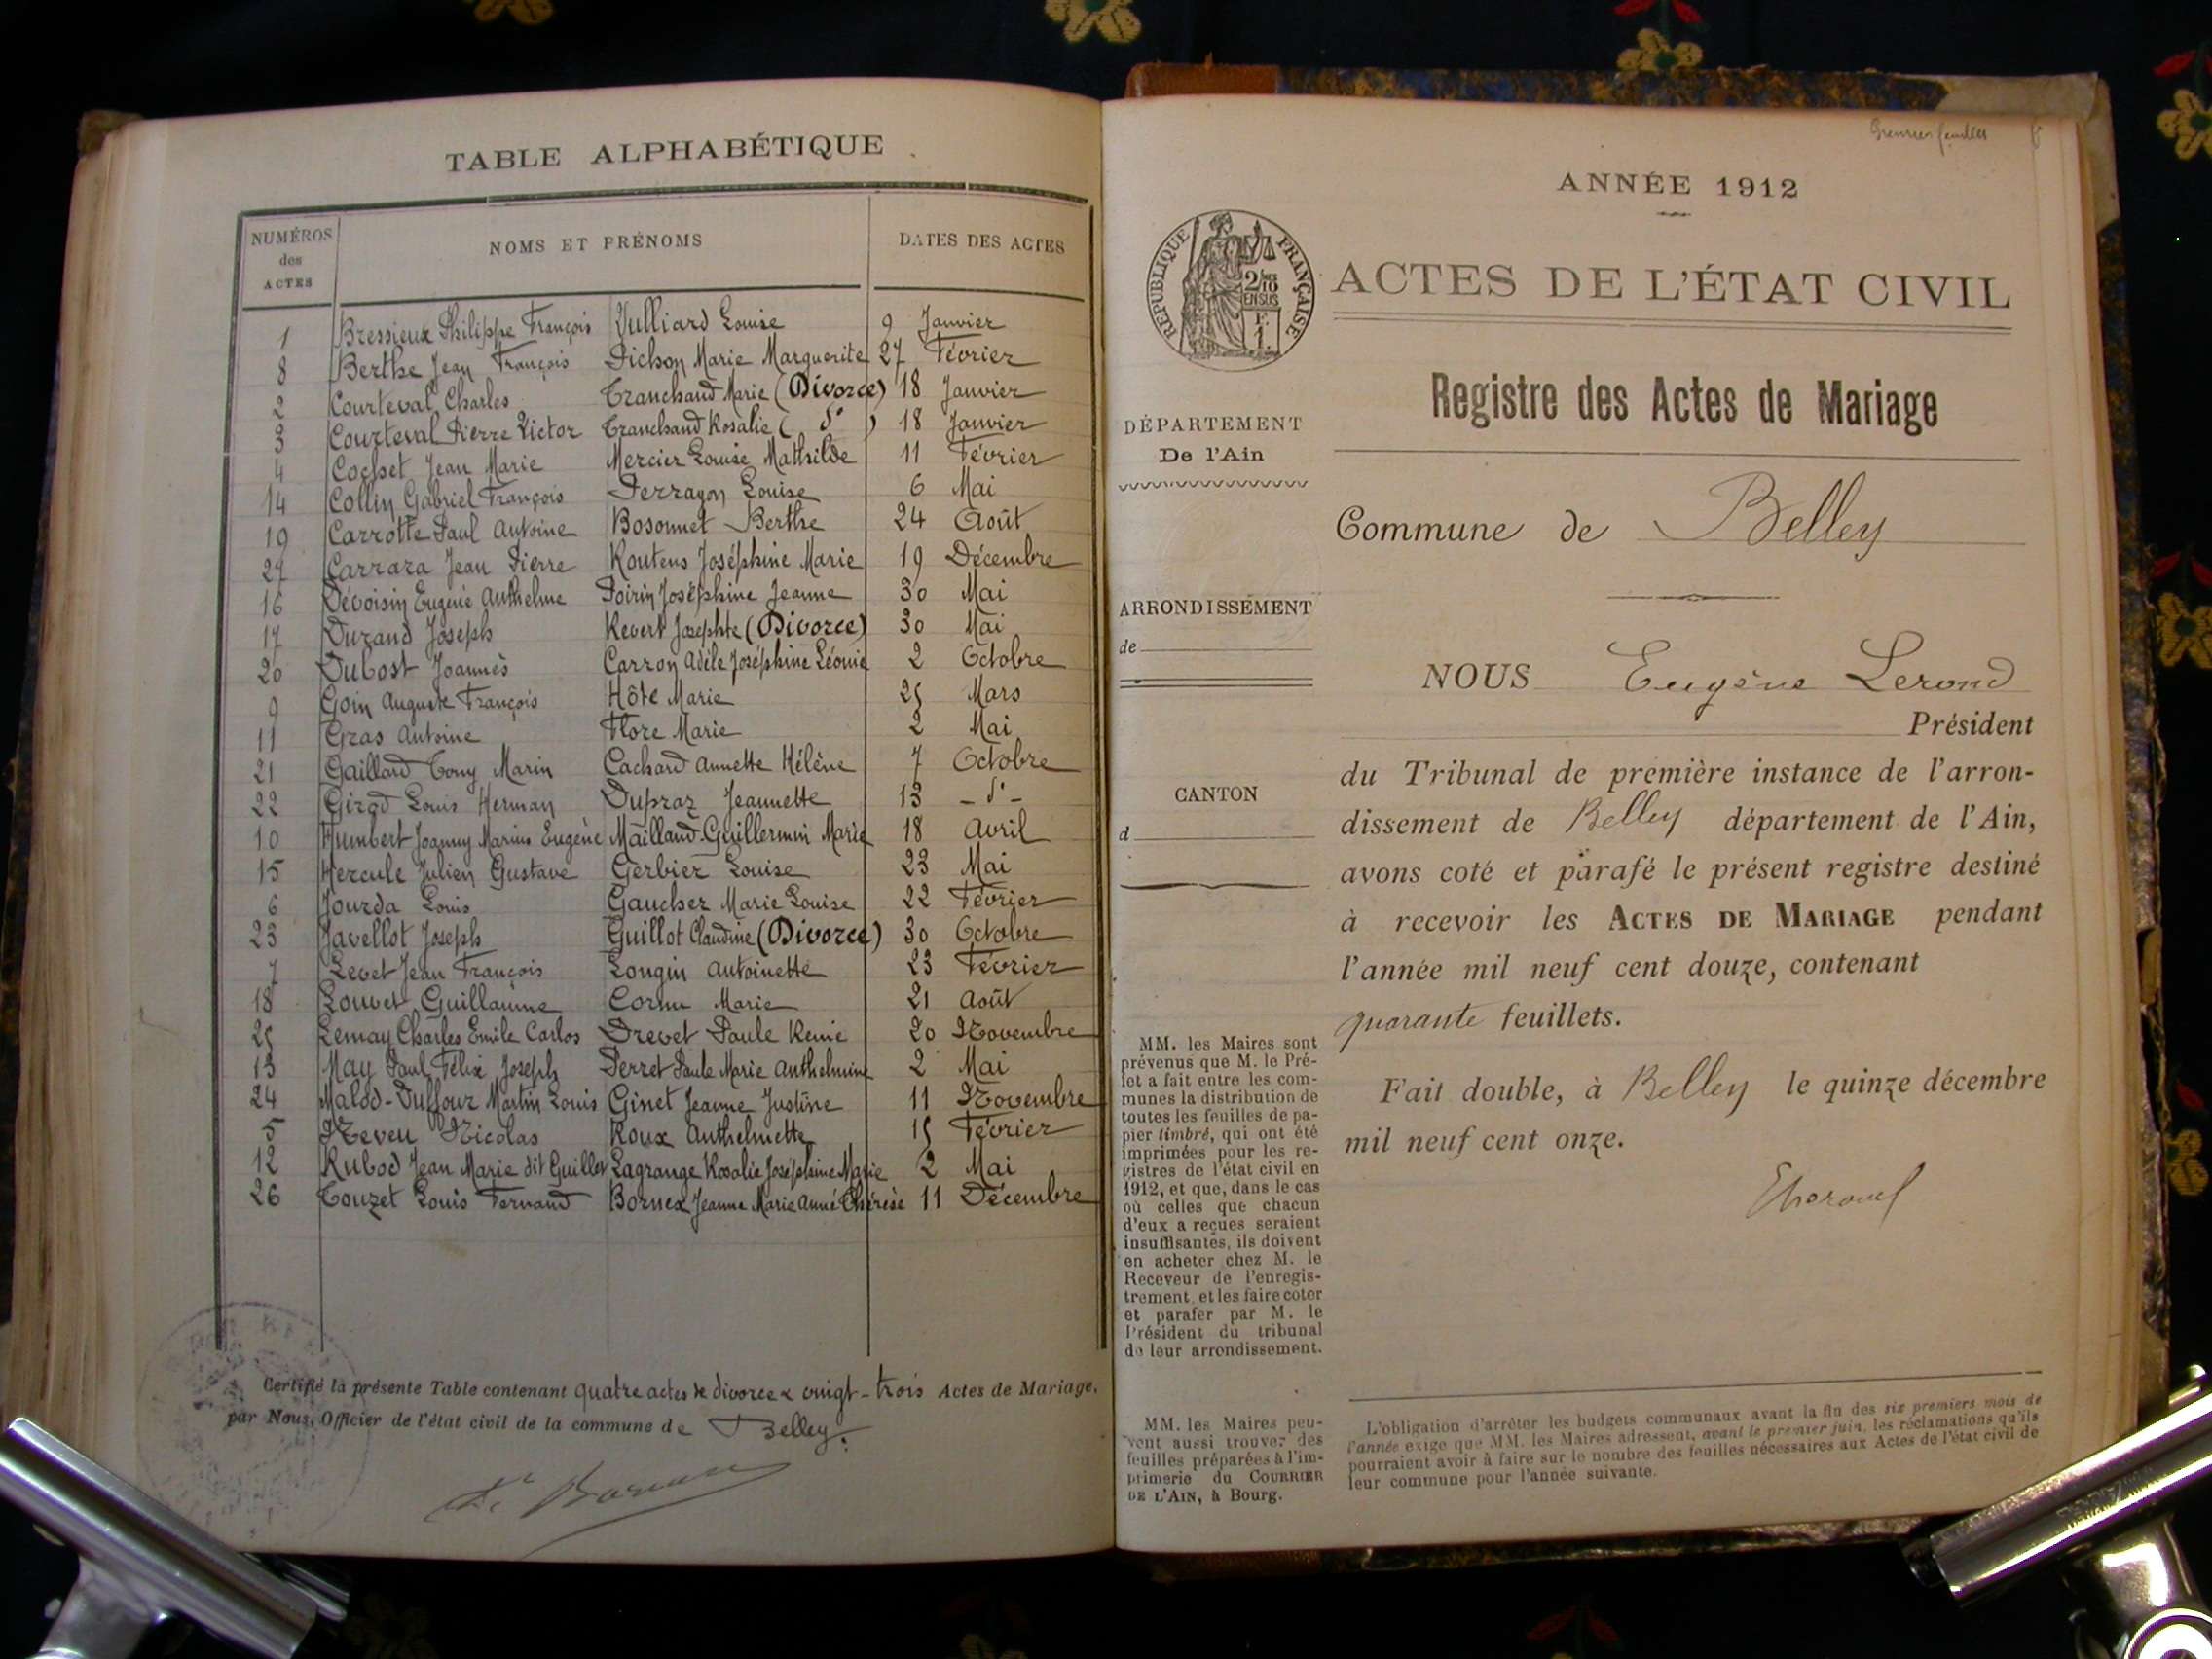 TABLE ALPHABÉTIQUE
NUMÉROS des ACTES NOMS ET PRÉNOMS DATES DES ACTES
1 Bressieux Philippe François Vulliard Louise 9 Janvier
8 Berthe Jean François Pichon Marie Marguerite 27 Février
2 Courteval Charles Tranchand Marie (Divorce) 18 Janvier
3 Courteval Pierre Victor Tranchand Rosalie ( d° ) 18 Janvier
4 Cochet Jean Marie Mercier Louise Mathilde 11 Février
14 Collin Gabriel François Perragon Louise 6 Mai
19 Carrotte Paul Antoine Bosonnet Berthe 24 Août
27 Carrara Jean Pierre Routens Joséphine Marie 19 Décembre
16 Dévoisin Eugène Anthelme Poirin Joséphine Jeanne 30 Mai
17 Durand Joseph Revert Josephte (Divorce) 30 Mai
20 Dubost Joannès Carron Adèle Joséphine Léonie 2 Octobre
9 Goin Auguste François Hôte Marie 25 Mars
11 Gras Antoine Flore Marie 2 Mai
21 Gaillard Tony Marin Cachard Annette Hélène 7 Octobre
22 Girod Louis Herman Dupraz Jeannette 13 - d° -
10 Humbert Joanny Marius Eugène Mailland-Guillermin Marie 18 Avril
15 Hercule Julien Gustave Gerbier Louise 23 Mai
6 Jourda Louis Gaucher Marie Louise 22 Février
23 Javellot Joseph Guillot Claudine (Divorce) 30 Octobre
7 Levet Jean François Longin Antoinette 23 Février
18 Louvet Guillaume Cornu Marie 21 Août
25 Lemay Charles Emile Carlos Drevet Paule Renie 20 Novembre
13 May Paul Félix Joseph Perret Paule Marie Anthelmine 2 Mai
24 Malod-Duffour Martin Louis Ginet Jeanne Justine 11 Novembre
5 Neveu Nicolas Roux Anthelmette 15 Février
12 Rubod Jean Marie dit Guillot Lagrange Rosalie Joséphine Marie 2 Mai
26 Touzet Louis Fernand Bornex Jeanne Marie Anne Thérèse 11 Décembre
Certifié la présente Table contenant quatre actes de divorce & vingt-trois Actes de Mariage,
par Nous, Officier de l'état civil de la commune de Belley.
ANNÉE 1912
RÉPUBLIQUE FRANÇAISE
2/10 EN SUS
F. 1.
ACTES DE L'ÉTAT CIVIL
Registre des Actes de Mariage
DÉPARTEMENT
De l'Ain
ARRONDISSEMENT
de
CANTON
d
MM. les Maires sont
prévenus que M. le Pré-
fet a fait entre les com-
munes la distribution de
toutes les feuilles de pa-
pier timbré, qui ont été
imprimées pour les re-
gistres de l'état civil en
1912, et que, dans le cas
où celles que chacun
d'eux a reçues seraient
insuffisantes, ils doivent
en acheter chez M. le
Receveur de l'enregis-
trement, et les faire coter
et parafer par M. le
Président du tribunal
de leur arrondissement.
MM. les Maires peu-
vent aussi trouver des
feuilles préparées à l'im-
primerie du COURRIER
DE L'AIN, à Bourg.
Commune de Belley
NOUS Eugène Lerond
Président
du Tribunal de première instance de l'arron-
dissement de Belley département de l'Ain,
avons coté et parafé le présent registre destiné
à recevoir les ACTES DE MARIAGE pendant
l'année mil neuf cent douze, contenant
quarante feuillets.
Fait double, à Belley le quinze décembre
mil neuf cent onze.
L'obligation d'arrêter les budgets communaux avant la fin des six premiers mois de
l'année exige que MM. les Maires adressent, avant le premier juin, les réclamations qu'ils
pourraient avoir à faire sur le nombre des feuilles nécessaires aux Actes de l'état civil de
leur commune pour l'année suivante.